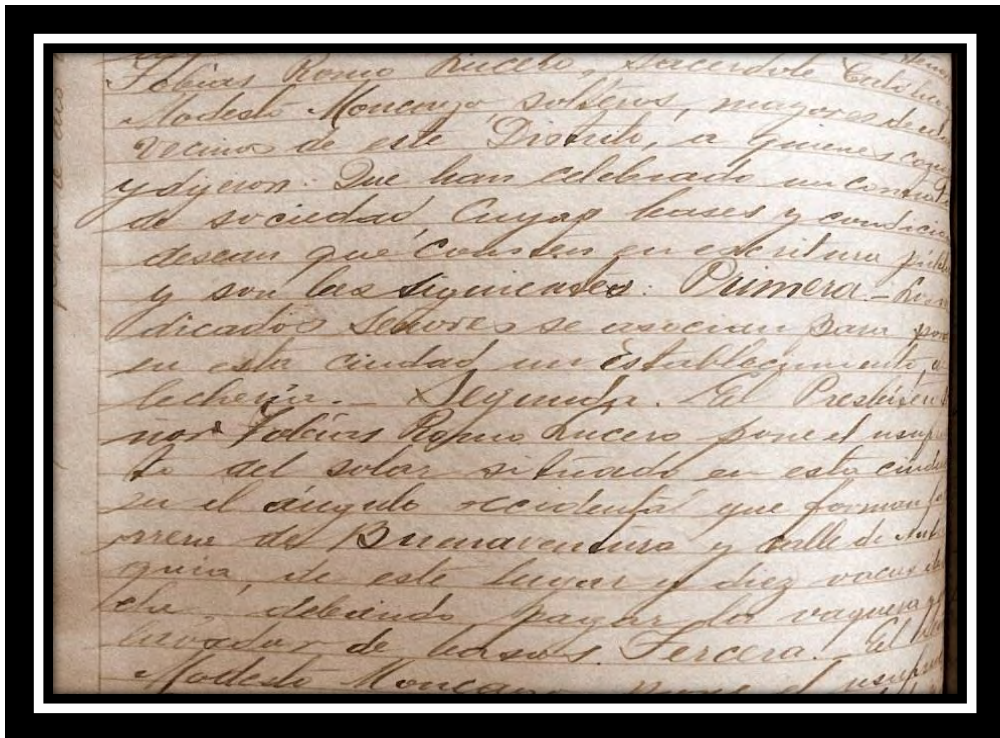 Tobias Romo Lucero, sacerdote Católico
Modesto Moncayo solteros, mayores de eda
vecinos de este Distrito, a quienes cono
y dijeron: Que han celebrado un contrato
de sociedad, Cuyas bases y condicio
desean que consten en escritura públi
y son las siguientes: Primera - Los in
dicados Señores se asocian para pon
en esta ciudad un establecimiento, de
lecheria. - Segunda. El Presbiter
ñor Tobias Romo Lucero pone el usufr
to del solar situado en esta ciudad
en el ángulo occidental que forman la
rrera de Buenaventura y calle de Antio
quia, de este lugar y diez vacas de
che, debiendo pagar la vaquera y
lavador de vasos. Tercera. El
Modesto Moncayo pone el usufru